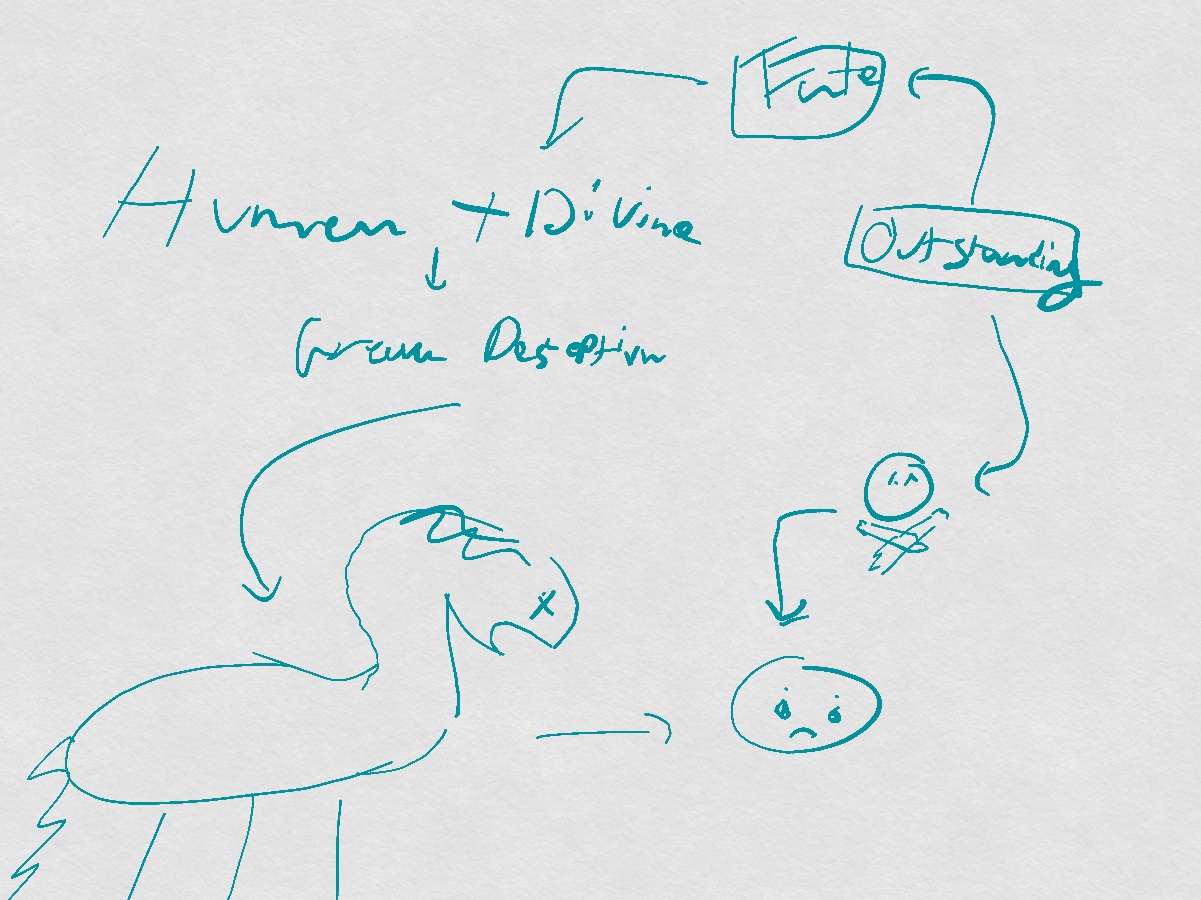 Fate
Human + Divine
Outstanding
Green Deseption